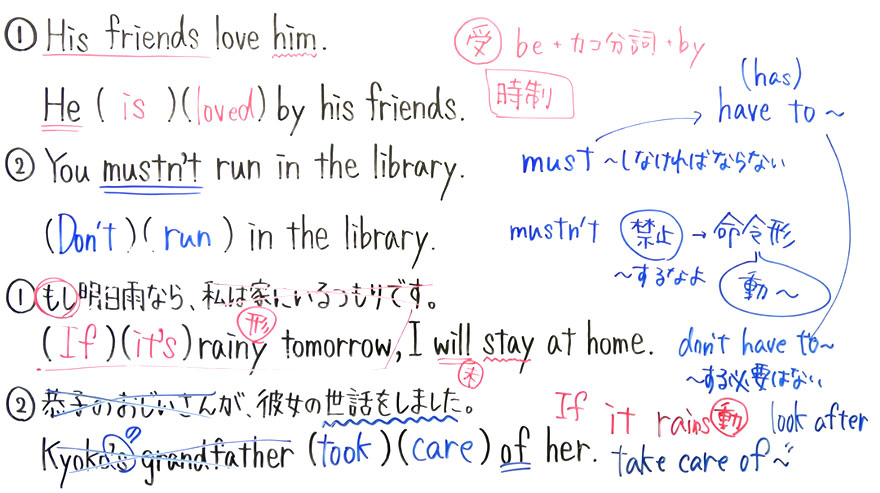 ① His friends love him.
He ( is )(loved) by his friends.
② You mustn't run in the library.
(Don't)( run ) in the library.
① もし明日雨なら、私は家にいるつもりです。
(If)(it's) rainy tomorrow, I will stay at home.
形
未
② 恭子のおじいさんが、彼女の世話をしました。
Kyoko's grandfather (took)(care) of her.
の
受 be + カコ分詞 + by
時制
(has)
have to ~
must ~しなければならない
mustn't 禁止 → 命令形
~するなよ
動~
don't have to~
~する必要はない
If it rains 動
look after
take care of ~